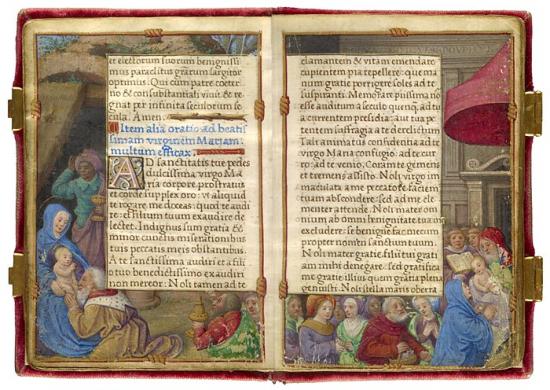 et electorum suorum benignissi
mus paraclitus grarum largitor
optimus. Qui cum patre coeter
no & consubstantiali vivit & re
gnat per infinita seculorum se
cula. Amen.
Item alia oratio ad beatis
simam virginem Mariam
multum efficax.
AD sanctitatis tue pedes
dulcissima virgo Ma
ria corpore prostratus
et corde supplex oro: vt aliquid
te rogare me doceas: quod te audi
re: et filium tuum exaudire de
lectet. Indignus sum gratia & im
munor cunctis miserationibus
tuis peccatis meis obstantibus.
A te sanctissima audiri et a fili
o tuo benedictissimo exaudiri
non mereor: Noli tamen ad te
clamantem & vitam emendare
cupientem pia repellere: que ma
num gratie porrigere soles ad te
suspiranti. Memorare piissima no
esse auditum a seculo quenq̃ ad tu
a currentem presidia: aut tua pe
tentem suffragia a te derelictum
Tali animatus confidentia ad te
virgo Maria confugio: ad te cur
ro: ad te venio. Coram te gemens
et tremens assisto. Noli virgo im
maculata a me peccatore faciem
tuam abscondere: sed ad me cle
menter attende. Noli mater om
nium ab omni benignitate tua me
excludere: se benigne fac mecum
propter nomen sanctum tuum.
Noli mater gratie, filii tui grati
am mihi denegare: sed gratifica
me gratie illius quum gratia plena
genuisti. Noli stella maris oberra